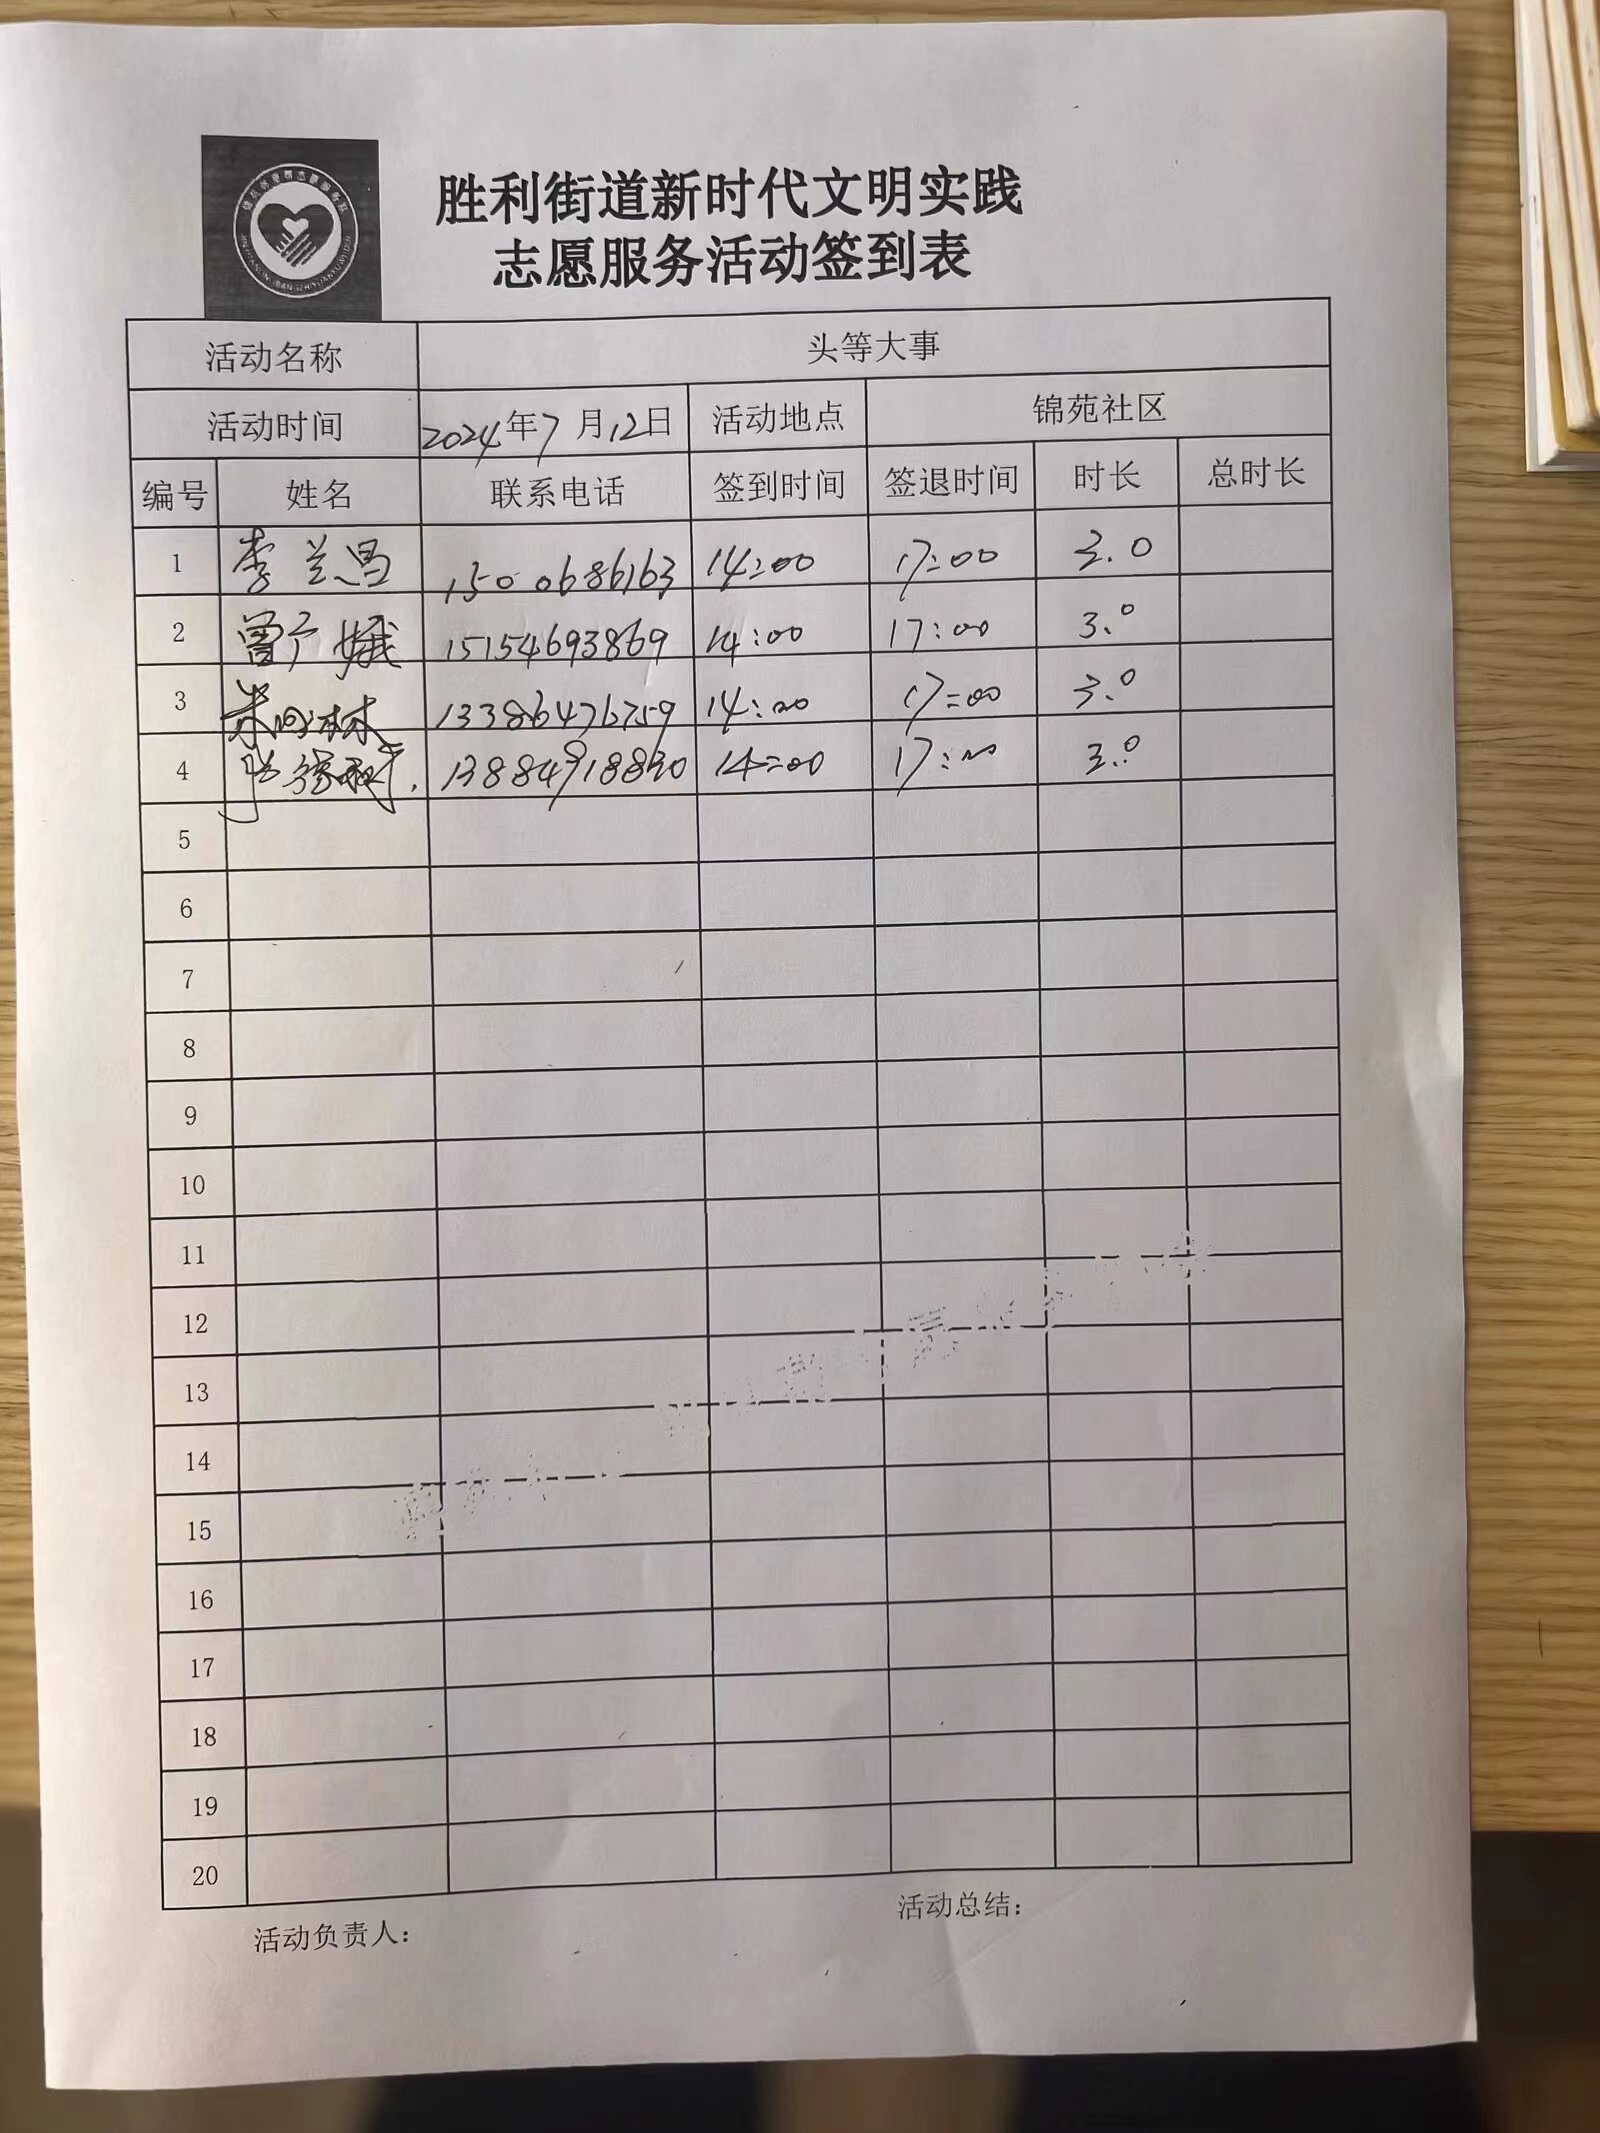 胜利街道新时代文明实践
志愿服务活动签到表
活动名称 头等大事
活动时间 2024年7月12日 活动地点 锦苑社区
编号 姓名 联系电话 签到时间 签退时间 时长 总时长
1 李兰昌 1500686163 14:00 17:00 3.0
2 曾广娥 15154693869 14:00 17:00 3.0
3 林 13386476759 14:00 17:00 3.0
4 13884918830 14:00 17:00 3.0
5
6
7
8
9
10
11
12
13
14
15
16
17
18
19
20
活动负责人： 活动总结：